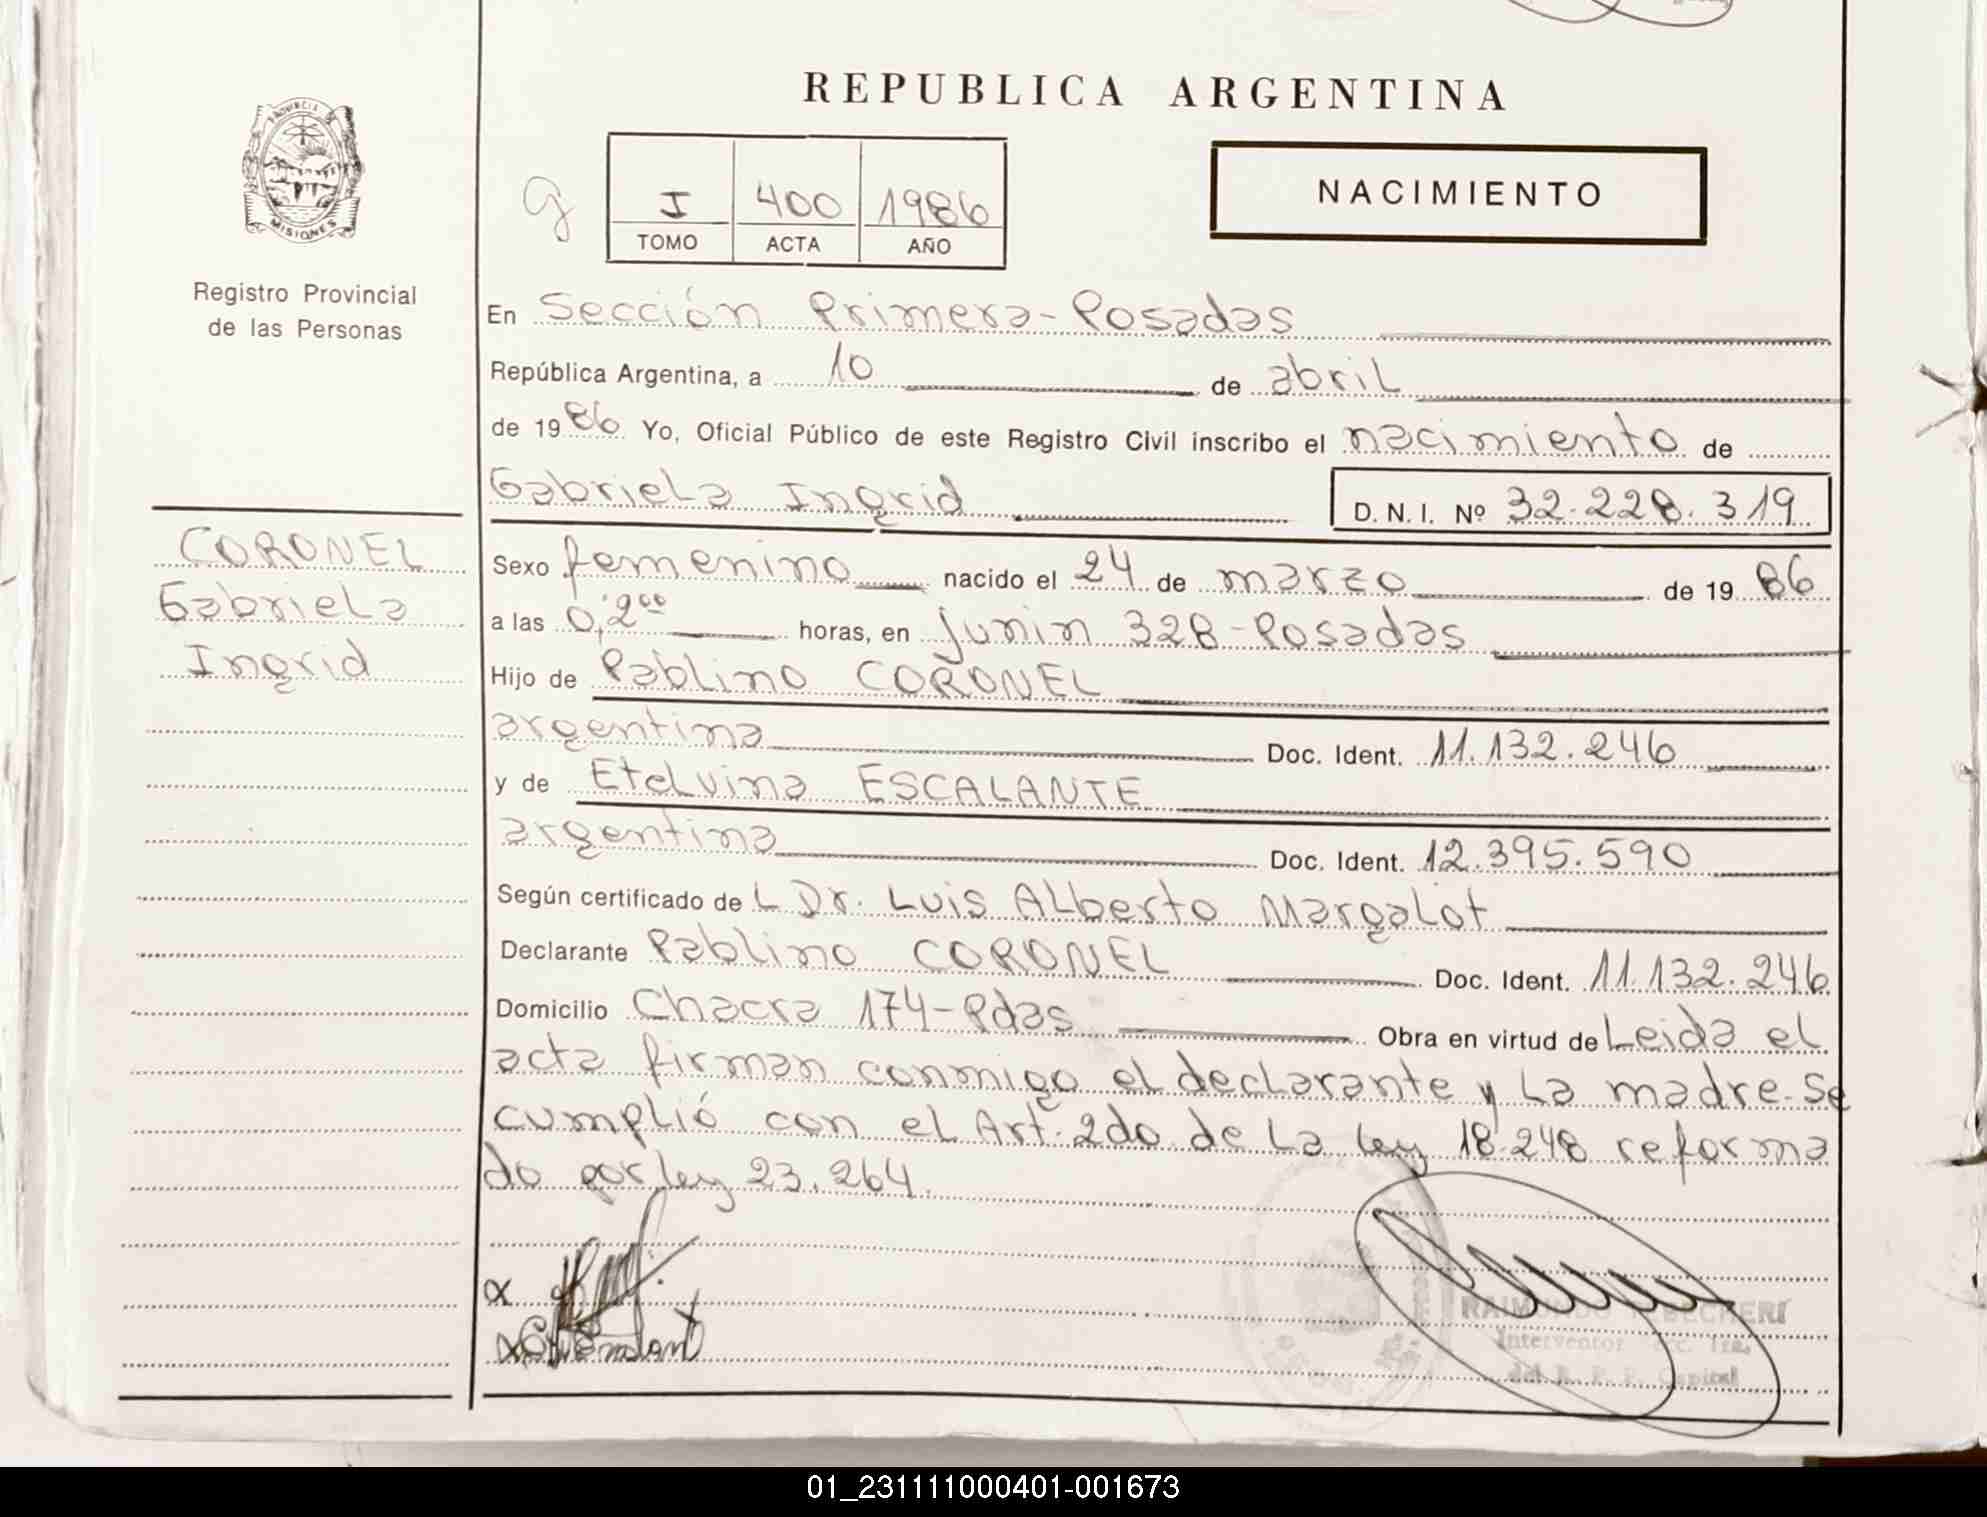 REPUBLICA ARGENTINA
PROVINCIA DE
MISIONES
g
I 400 1986
TOMO ACTA AÑO
NACIMIENTO
Registro Provincial
de las Personas
En Sección Primera-Posadas
República Argentina, a 10 de abril
de 1986 Yo, Oficial Público de este Registro Civil inscribo el nacimiento de
Gabriela Ingrid D. N. I. Nº 32.228.319
CORONEL
Gabriela
Ingrid
Sexo femenino nacido el 24 de marzo de 1986
a las 0,2⁰⁰ horas, en Junin 328-Posadas
Hijo de Pablino CORONEL
argentina Doc. Ident. 11.132.246
y de Etelvina ESCALANTE
argentina Doc. Ident. 12.395.590
Según certificado de L Dr. Luis Alberto Margalot
Declarante Pablino CORONEL Doc. Ident. 11.132.246
Domicilio Chacra 174-Pdas Obra en virtud de Leida el
acta firman conmigo el declarante y la madre-Se
cumplió con el Art. 2do de la ley 18.248 reforma
do por ley 23.264.
Interventor Sec. 1ra.
del R. P. P. Capital
01_231111000401-001673